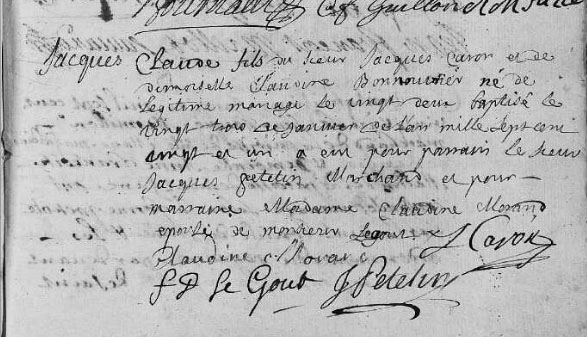 Jacques Claude fils du sieur Jacques Caron et de
demoiselle Claudine Bonnouvrier né de
legitime mariage le vingt deux baptisé le
vingt trois de janvier de l'an mille sept cent
vingt et un a eu pour parrain le sieur
Jacques petelin Marchand et pour
marraine Madame Claudine Morand
epouse de monsieur Legout
J Caron
Claudine Morand
f D Le Gout J Petelin